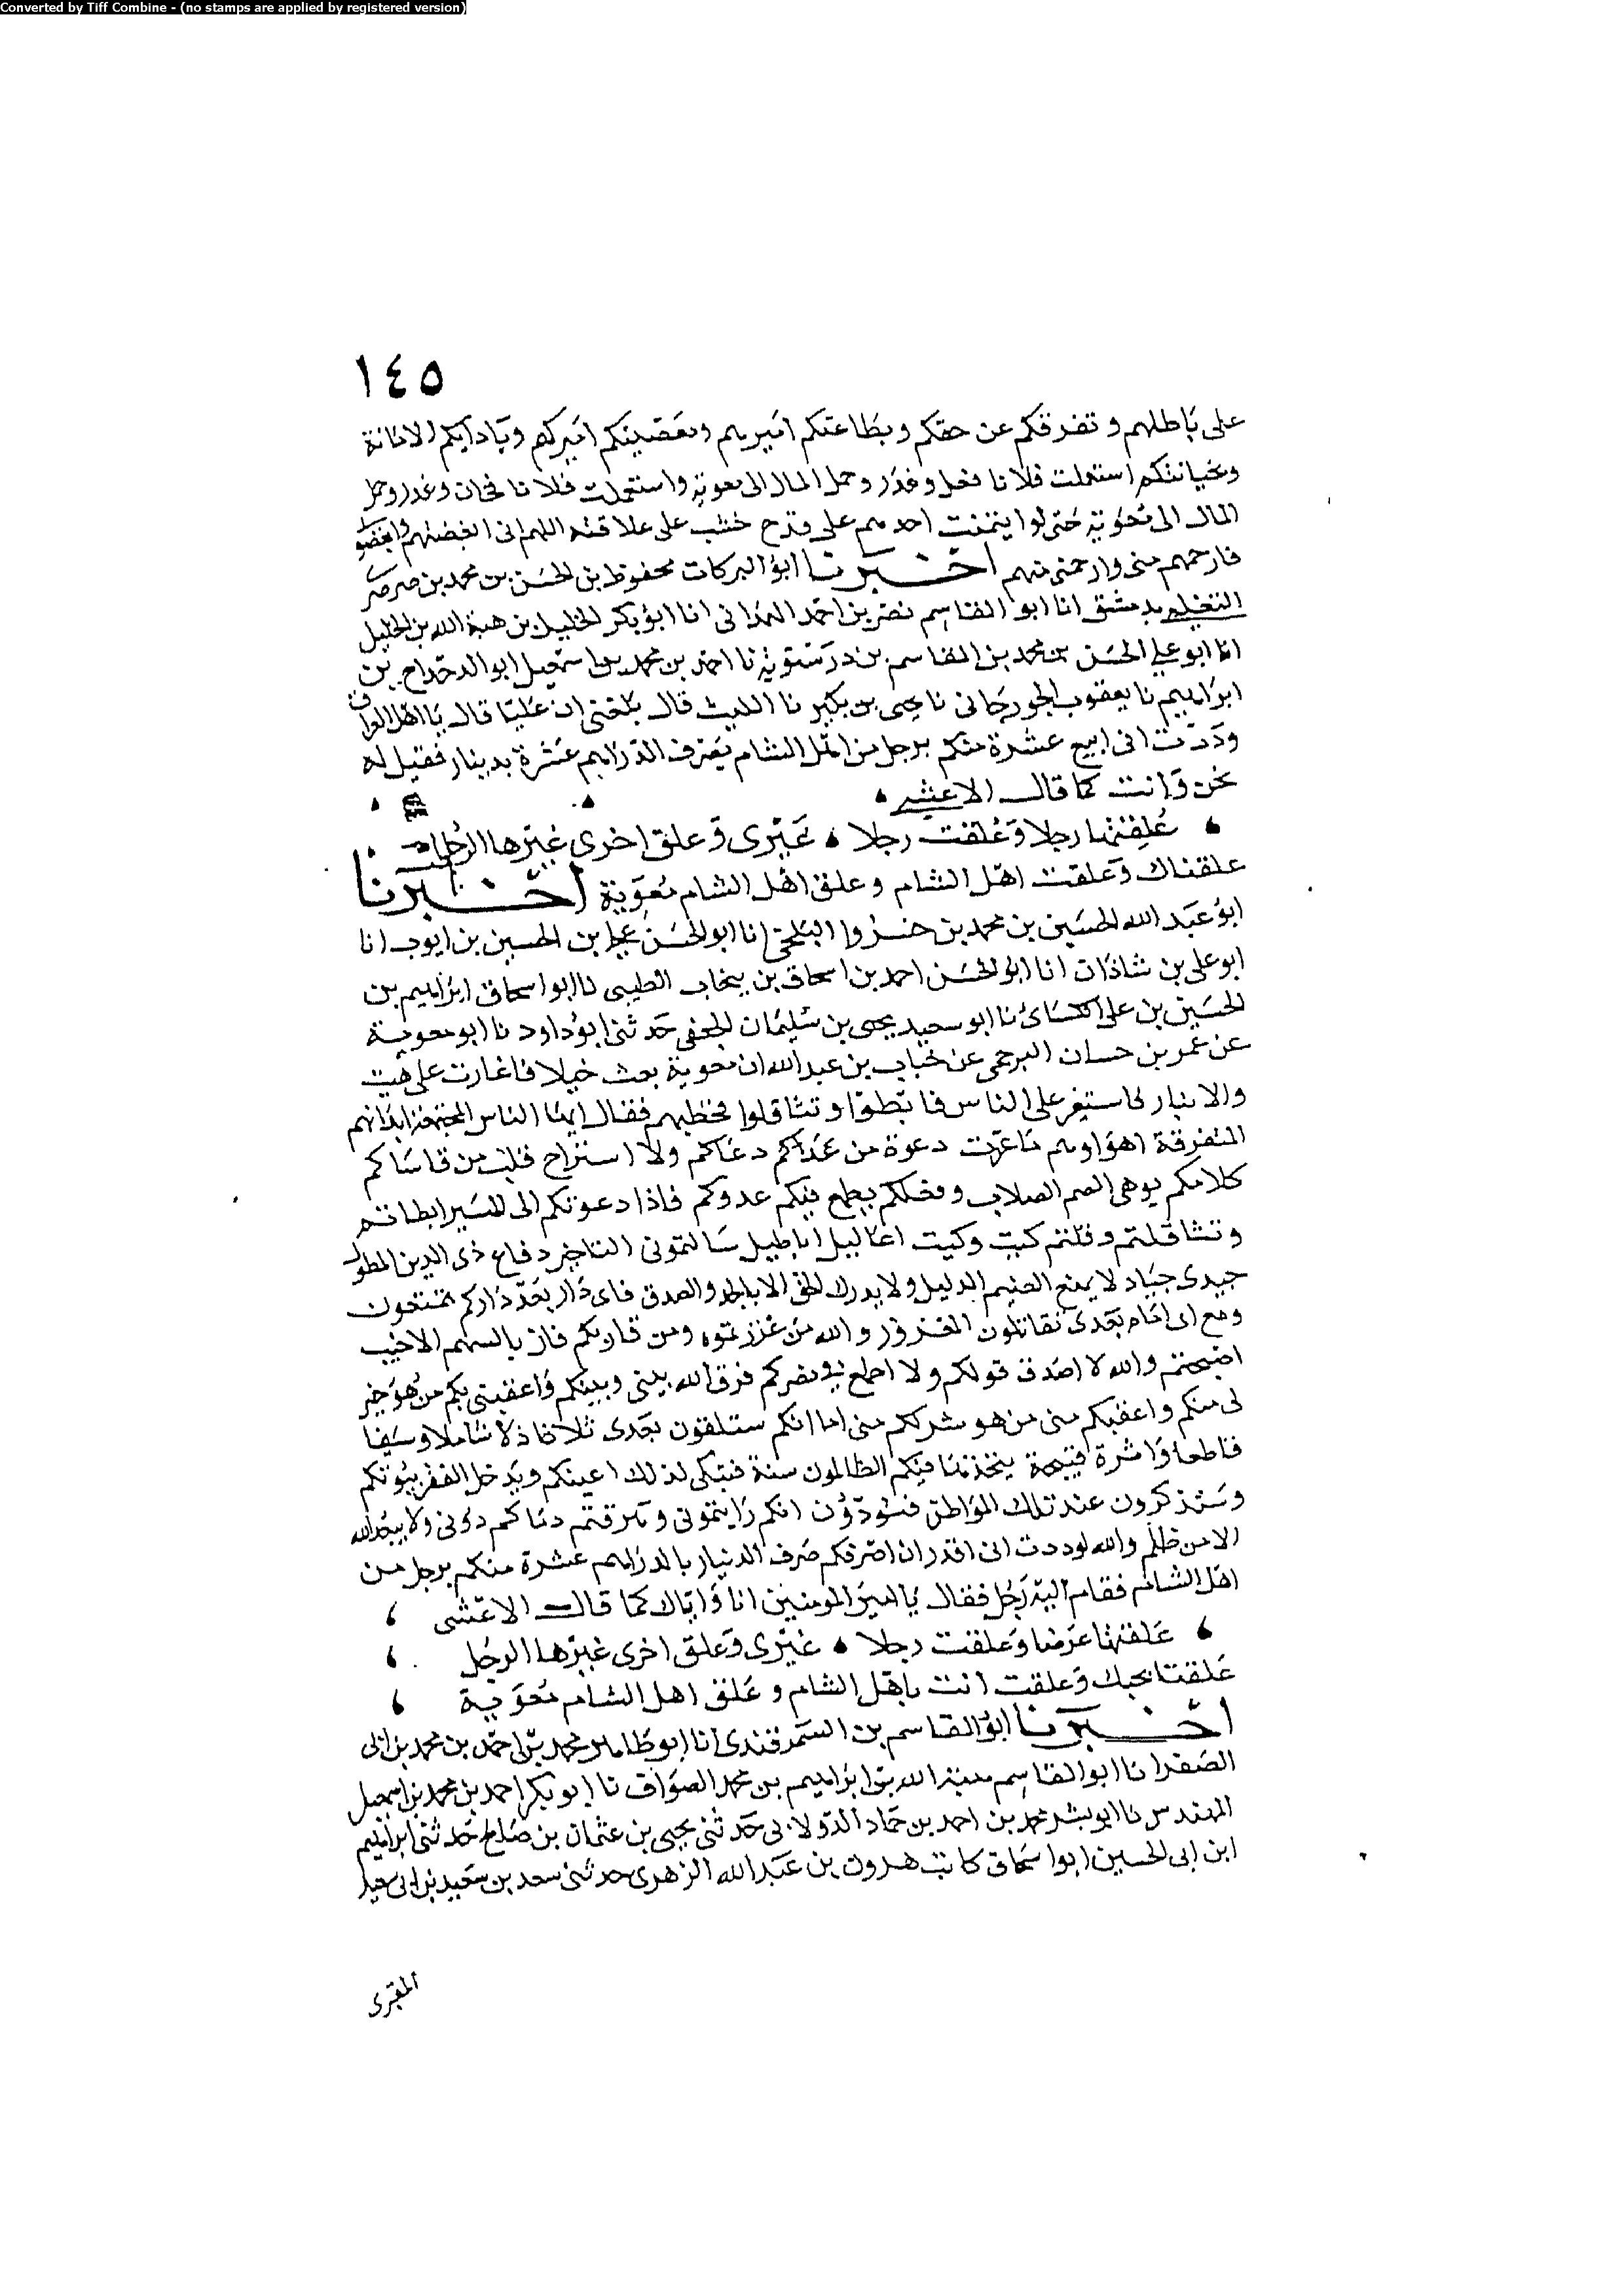 Converted by Tiff Combine - (no stamps are applied by registered version)
١٤٥
على باطلهم وتفرقكم عن حقكم وبطاعتكم اميرهم ومعصيتكم اميركم وباداىكم الامانة
وبخيانتكم استعملت فلانا فغل وغدر وحمل المال الى معوية واستعملت فلانا فخان وغدر وحمل
المال الى معوية حتى لو ايتمنت احدهم على قدح خشب على علاقته اللهم انى ابغضتهم وابغضونى
فارحمهم منى وارحمنى منهم اخبرنا ابو البركات محفوظ بن الحسن بن محمد بن صصرى
التغلبى بدمشق انا ابو القاسم نصر بن احمد الهمذانى انا ابو بكر الخليل بن هبة الله بن الخليل
انا ابو على الحسن بن محمد بن القاسم بن درستويه نا احمد بن محمد بن اسمعيل ابو الدحداح بن
ابراهيم نا يعقوب الجوزجانى نا يحيى بن بكير نا الليث قال بلغنى ان عليا قال يا اهل العراق
وددت انى ابيع عشرة منكم برجل من اهل الشام بصرف الدراهم عشرة بدينار فقيل له
نحن وانت كما قال الاعشى
علقتها رجلا وعلقت رجلا غيرى وعلق اخرى غيرها الرجل
علقناك وعلقت اهل الشام وعلق اهل الشام معوية اخبرنا
ابو عبد الله الحسين بن محمد بن خسروا البلخى انا ابو الحسن على بن الحسين بن ايوب انا
ابو على بن شاذان انا ابو الحسن احمد بن اسحاق بن ينخاب الطيبى نا ابو اسحاق ابراهيم بن
الحسين بن على الكسائى نا ابو سعيد يحيى بن سليمان الجعفى حدثنى ابو داود نا ابو معوية
عن عمر بن حسان البرجمى عن خباب بن عبد الله ان معوية بعث خيلا فاغارت على هيت
والانبار فاستنفر على الناس فابطوا وتثاقلوا فخطبهم فقال ايها الناس المجتمعة ابدانهم
المتفرقة اهواوهم ما عزت دعوة من دعاكم ولا استراح قلب من قاساكم
كلامكم يوهى الصم الصلاب وفعلكم يطمع فيكم عدوكم فاذا دعوتكم الى المسير ابطاتم
وتثاقلتم وقلتم كيت وكيت اعاليل اباطيل سالتمونى التاخير دفاع ذى الدين المطول
حيدى حياد لا يمنع الضيم الذليل ولا يدرك الحق الا بالجد والصدق فاى دار بعد داركم تمنعون
ومع اى امام بعدى تقاتلون المغرور والله من غررتموه ومن فاز بكم فاز بالسهم الاخيب
اصبحت والله لا اصدق قولكم ولا اطمع فى نصركم فرق الله بينى وبينكم واعقبنى بكم من هو خير
لى منكم واعقبكم منى من هو شر لكم منى اما انكم ستلقون بعدى ثلاثا ذلا شاملا وسيفا
قاطعا واثرة قبيحة يتخذها فيكم الظالمون سنة فتبكى لذلك اعينكم ويدخل الفقر بيوتكم
وستذكرون عند تلك المواطن فتودون انكم رايتمونى وهرقتم دماكم دونى ولا يبعد الله
الا من ظلم والله لوددت انى اقدر ان اصرفكم صرف الدنيار بالدراهم عشرة منكم برجل من
اهل الشام فقام اليه رجل فقال يا امير المومنين انا واياك كما قال الاعشى
علقتها عرضا وعلقت رجلا غيرى وعلق اخرى غيرها الرجل
علقنا بحبك وعلقت انت باهل الشام وعلق اهل الشام معوية
اخبرنا ابو القاسم بن السمرقندى انا ابو طاهر محمد بن احمد بن محمد بن ابى
الصقر انا ابو القاسم هبة الله بن ابراهيم بن محمد الصواف نا ابو بكر احمد بن محمد بن اسمعيل
المهندس نا ابو بشر محمد بن احمد بن حماد الدولابى حدثنى يحيى بن عثمان بن صالح حدثنى ابراهيم
ابن ابى الحسين ابوا سحاق كاتب هرون بن عبد الله الزهرى حدثنى سعد بن سعيد بن ابى سعيد
المقبرى